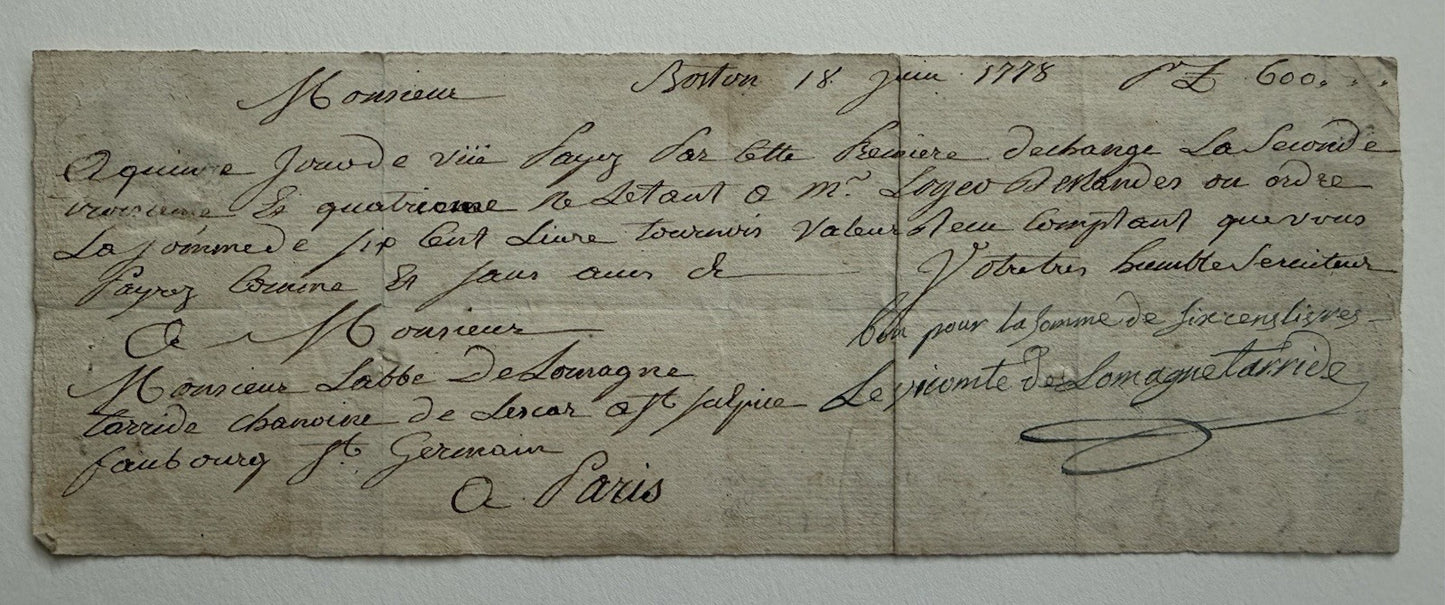 Boston 18 juin 1778 Pr £ 600
Monsieur
A quinze Jours de vüe Payez Par Cette Premiere dechange La Seconde
troisieme Et quatrieme Ne Letant a Mr.
La somme de six Cent Livre tournois Valeur Reçu Comptant que vous
Payrez Comme Et sans avis de Votre tres humble Serviteur
A Monsieur
bon pour la somme de six cens livres
Monsieur Labbé De Lomagne
Le vicomte de Lomagne tarride
tarride chanoine de Lescar a St Sulpice
faubourg St. Germain
A Paris